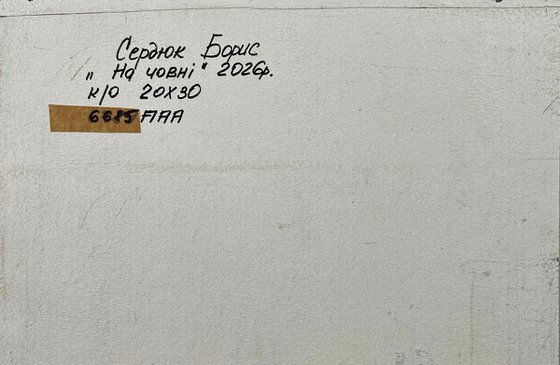 Сердюк Борис
„ На човні " 2026р.
к/о 20х30
6685 ПАА